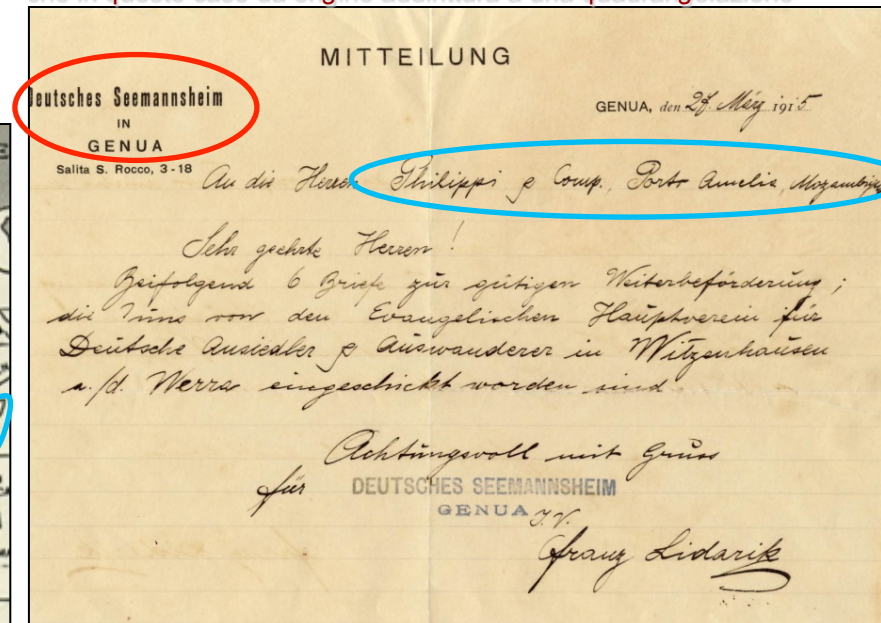 che in questo caso dà origine addirittura a una quadrangolazione
MITTEILUNG
Deutsches Seemannsheim
IN
GENUA
Salita S. Rocco, 3-18
GENUA, den 27. März 1915
An die Herren Philippi & Comp., Porto Amelia, Mozambique
Sehr geehrte Herren!
Beifolgend 6 Briefe zur gütigen Weiterbeförderung;
die uns von den Evangelischen Hauptverein für
Deutsche Ansiedler & Auswanderer in Witzenhausen
a./d. Werra eingeschickt worden sind
Achtungsvoll mit Gruss
für DEUTSCHES SEEMANNSHEIM
GENUA
I.V.
Franz Lidarik